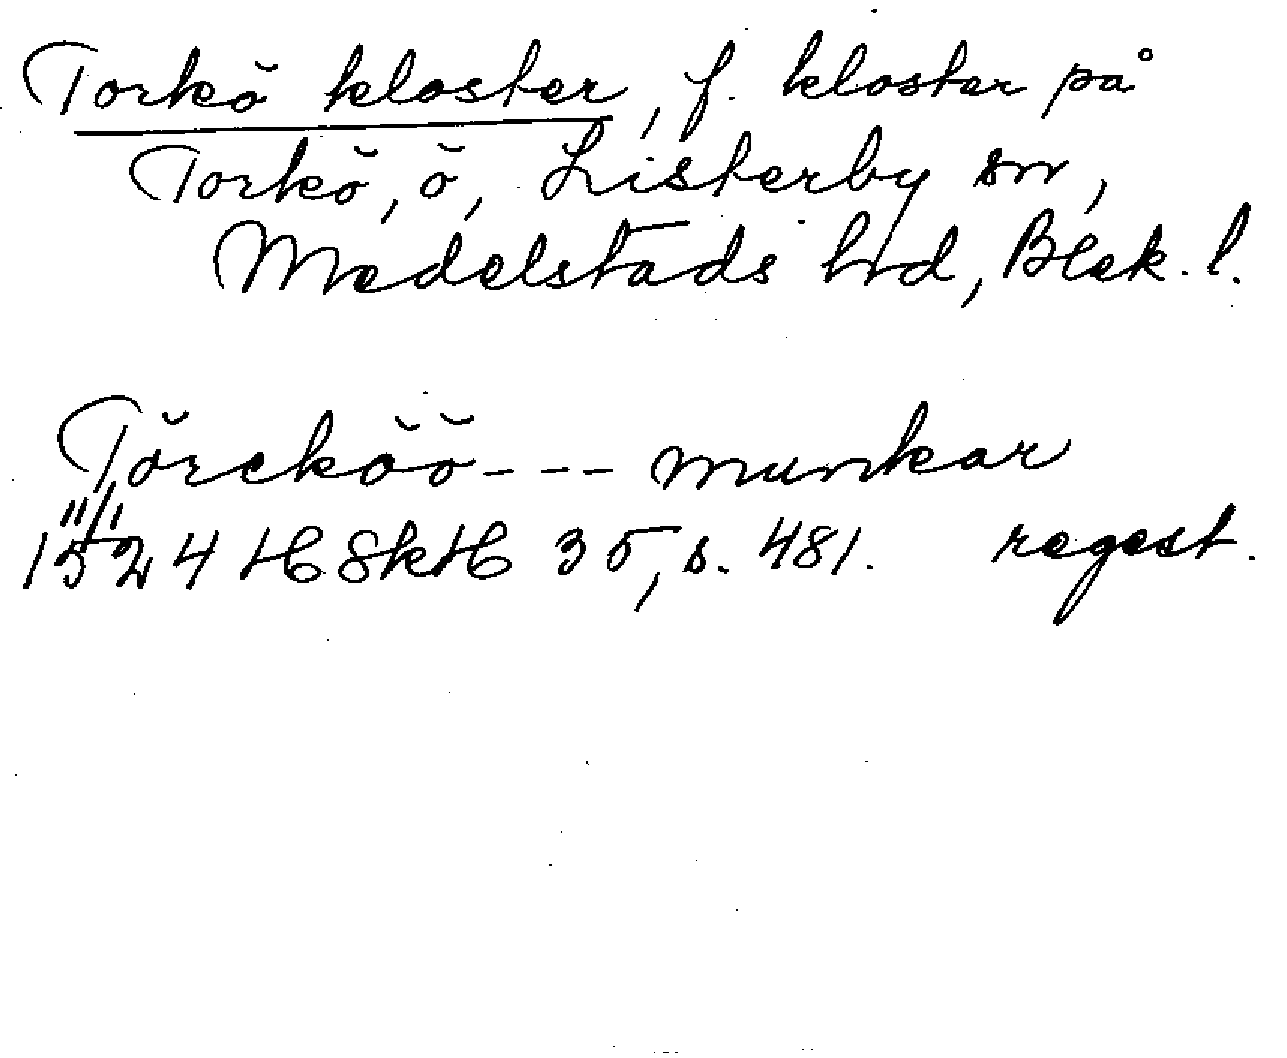 Torkö kloster, f. kloster på
Torkö, ö, Listerby sn,
Medelstads hd, Blek. l.
Törcköö--- munkar
11/1
1524 HSkH 35, s. 481. regest.